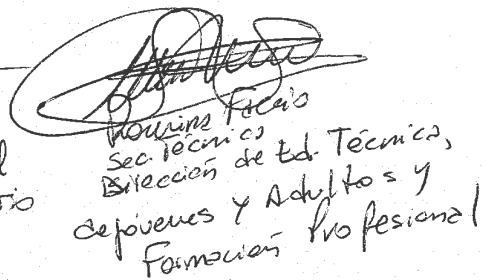 Sec. Técnica
Dirección de Ed. Técnica,
de jóvenes y Adultos y
Formación Profesional